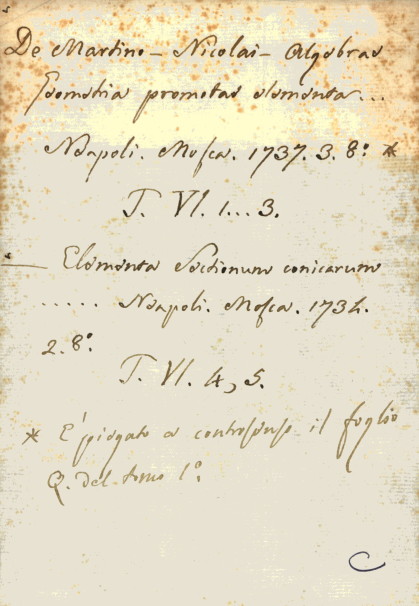 De Martino - Nicolai - Algebrae
Geometria promotae elementa...
Neapoli. Mosca. 1737. 3. 8.º *
T. VI. 1...3.
— Elementa Sectionum conicarum
..... Neapoli. Mosca. 1734.
2. 8.º
T. VI. 4, 5.
* E' piegato a controsenso il foglio
Q. del tomo 1.º
C